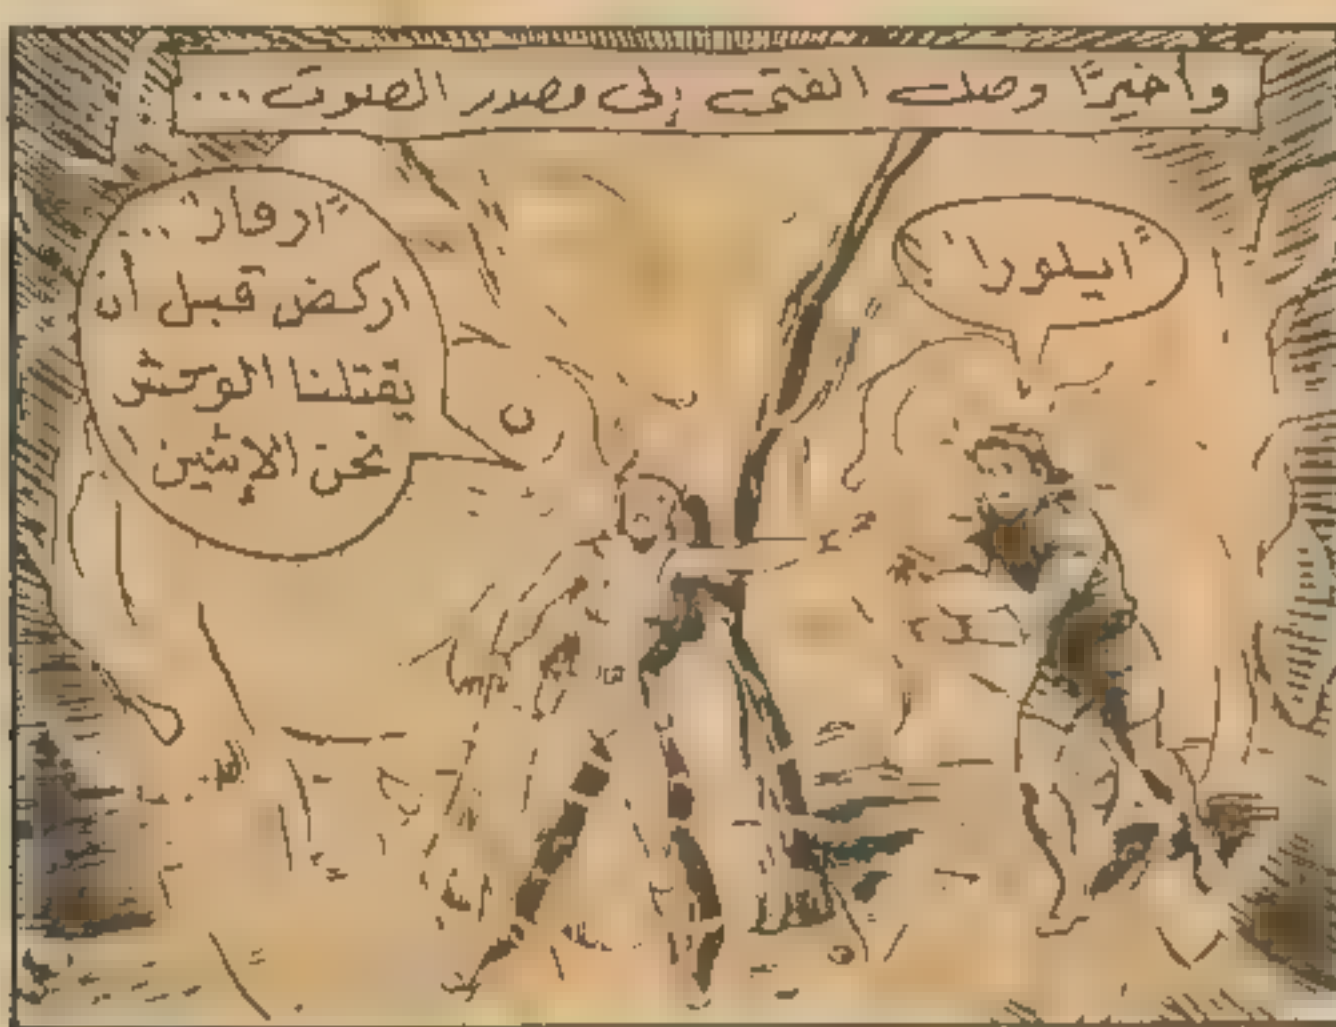 وأخيرًا وصل الفتى إلى مصدر الصوت...
"ايلورا"!
"ارفار"...
اركض قبل أن
يقتلنا الوحش
نحن الإثنين!